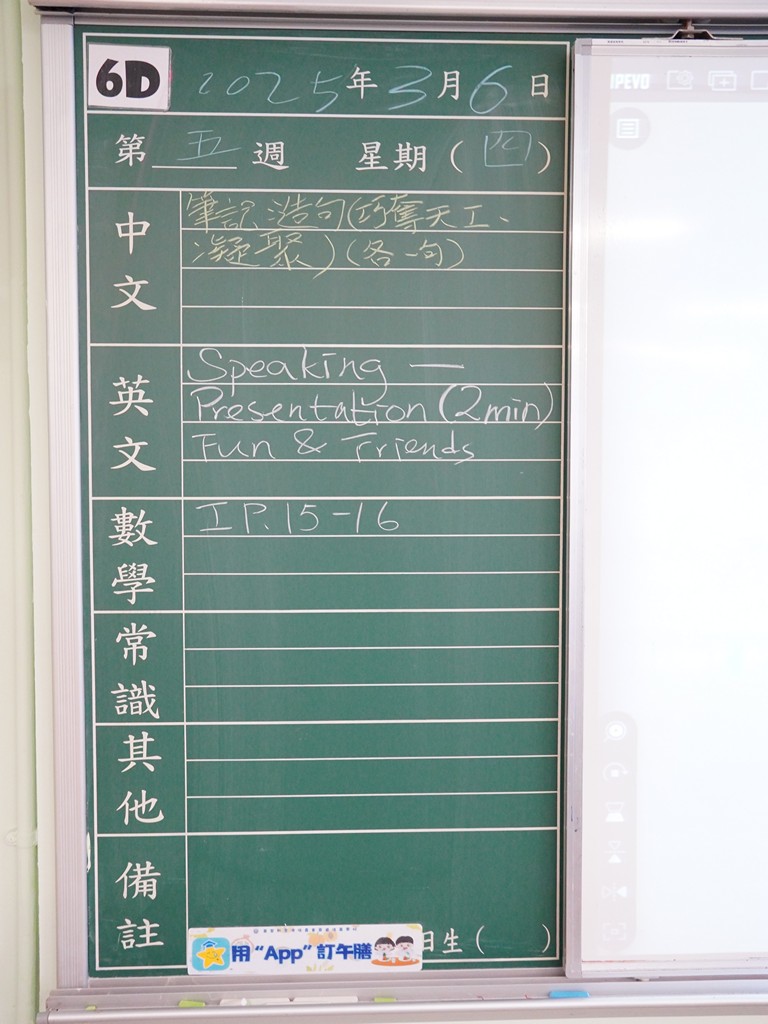 6D 2025年3月6日
第五週 星期(四)
中文
筆記、造句(巧奪天工、
凝聚)(各一句)
英文
Speaking —
Presentation (2min)
Fun & Friends
數學
I P.15-16
常識
其他
備註
日生( )
用“App”訂午膳
IPEVO